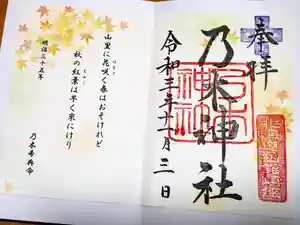 奉拝
乃木神社
令和三年十一月三日
山里に花咲く春はおそけれど
秋の紅葉は早く来にけり
明治三十五年
乃木希典命